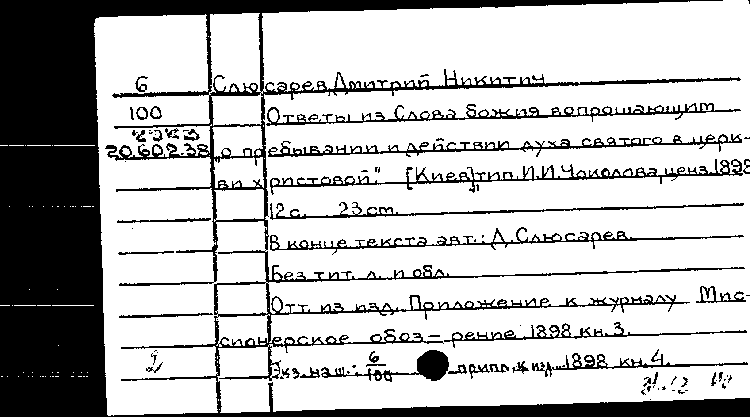 6 Слюсарев, Дмитрий Никитич
100 Ответы из Слова Божия вопрошающим
20.602.38 „о пребывании и действии духа святого в церк-
ви христовой." [Киев] тип. И.И. Чоколова, ценз. 1898
12 с. 23 cm.
В конце текста авт.: Д. Слюсарев.
Без тит. л. и обл.
Отт. из изд. Приложение к журналу Мис-
сионерское обоз-рение 1898 кн. 3.
2 Экз. наш.: 6/100 прил. к изд. 1898 кн. 4.